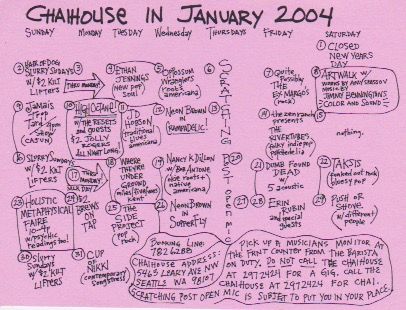 CHAIHOUSE IN JANUARY 2004
SUNDAY MONDAY TUESDAY Wednesday THURSDAYS FRIDAY SATURDAY
1 CLOSED
NEW YEARS
DAY
2 HAIR OF DOG
SLURRY SUNDAYS
w/ $2 KILT
LIFTERS
3
THRU MONDAY!
4 ETHAN
JENNINGS
new pop
Soul
5 Opossum
Wranglers
roots
americana
6
SCRATCHING POST OPEN MIC
7 Quite
Possibly
THE
EX-MARGOS
(rock)
8 ARTWALK w/
WORKS BY AMY
MUSIC BY
JIMMY BENNINGTON'S
COLOR AND SOUND
9 JAMAIS
TROP
Show
(CAJUN)
10 HIGH OCTANE!
w/ THE RESETS
and guests
$2 JOLLY
ROGERS
ALL NIGHT LONG.
11 JD
HOBSON
traditional
americana
12 NEON BROWN
IN
13
14 the zenrands
presents
THE
RIVERTUBES
folky indie pop
15
nothing.
16 SLURRY SUNDAYS
w/ $2 KILT
LIFTERS
17
THRU MONDAY
MLK DAY
18 WHERE
THEY'RE
UNDER
GROUND
Kent
19 NANCY K DILLON
w/ BOB ANTONE
roots
native
americana)
20
21 DUMB FOUND
DEAD
w/
5 acoustic
22 TAKSIS
glossy pop
23 HOLISTIC
METAPHYSICAL
FAIRE
10-4
w/ PSYCHIC
readings too!
24
BREWS
ON
TAP
25 THE
SIDE
PROJECT
pop
rock
26 NEON BROWN
IN
SUPERFLY
27
28 ERIN
RUBIN
and special
guests
29 PUSH OR
SHOVE
w/ different
people
30 SLURRY
SUNDAYS
w/ $2 KILT
LIFTERS
31 CUP
OF
NIKKI
(contemporary
songstress)
BOOKING LINE:
782 6288
CHAIHOUSE ADDRESS:
5463 LEARY AVE NW
SEATTLE WA 98107
PICK UP A MUSICIANS MONITOR AT
THE FRNT COUNTER FROM THE BARISTA
ON DUTY. DO NOT CALL THE CHAIHOUSE
AT 297 2424 FOR A GIG. CALL THE
CHAIHOUSE AT 297 2424 FOR CHAI.
SCRATCHING POST OPEN MIC IS SUBJECT TO PUT YOU IN YOUR PLACE.